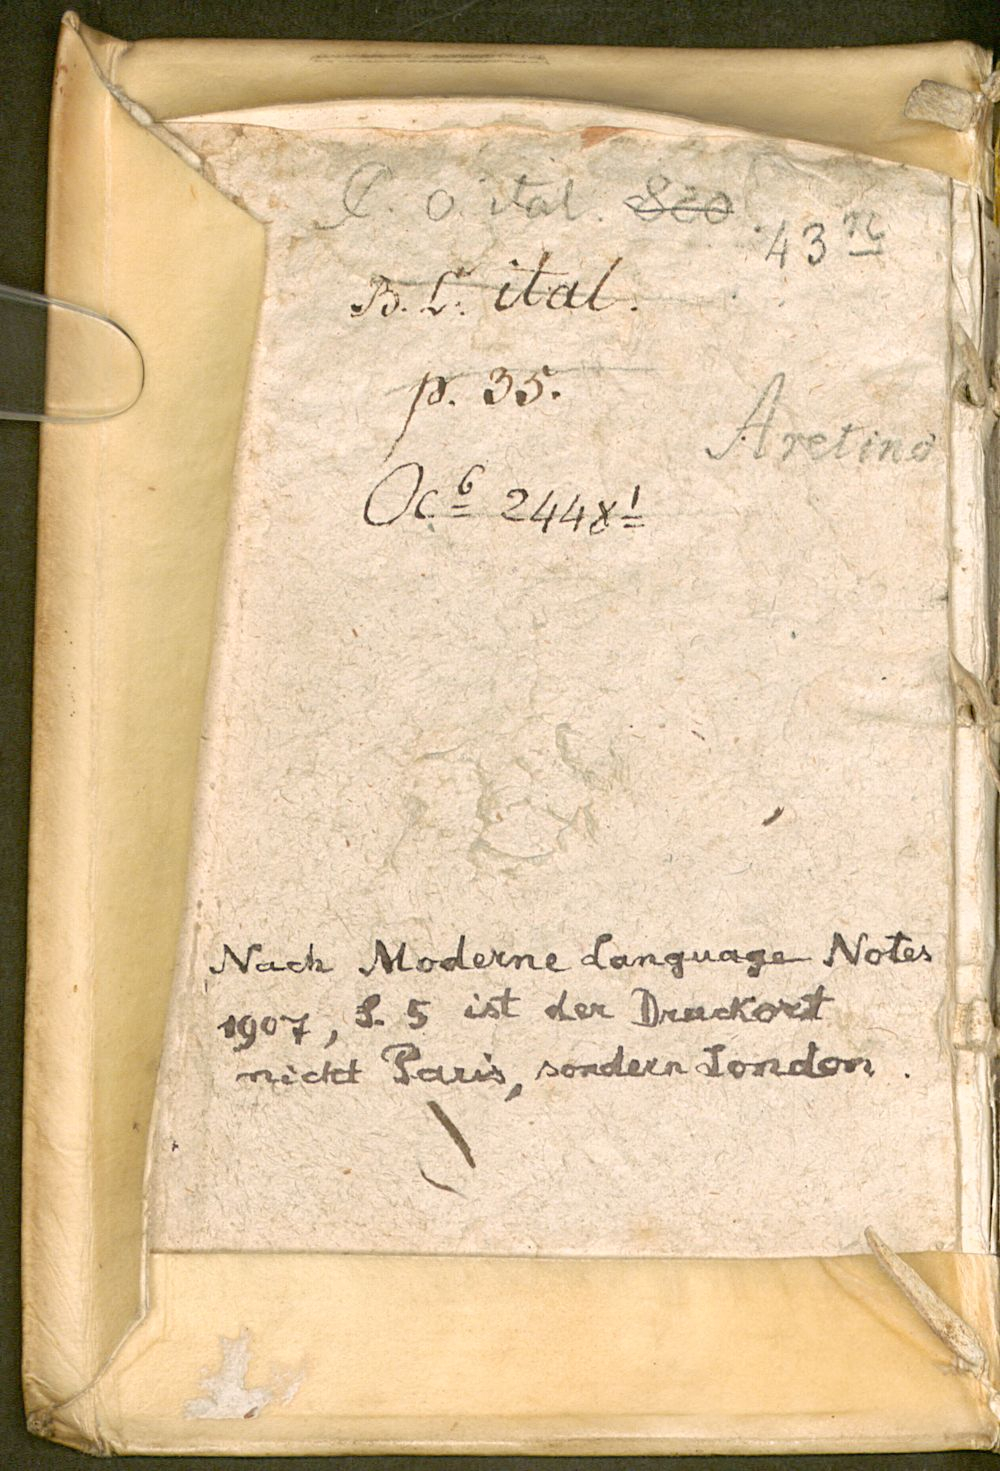 P. o. ital. 820 43 n
B. L. ital.
p. 35.
Aretino
Oc 6 2448 1
Nach Moderne Language Notes
1907, S. 5 ist der Druckort
nicht Paris, sondern London.